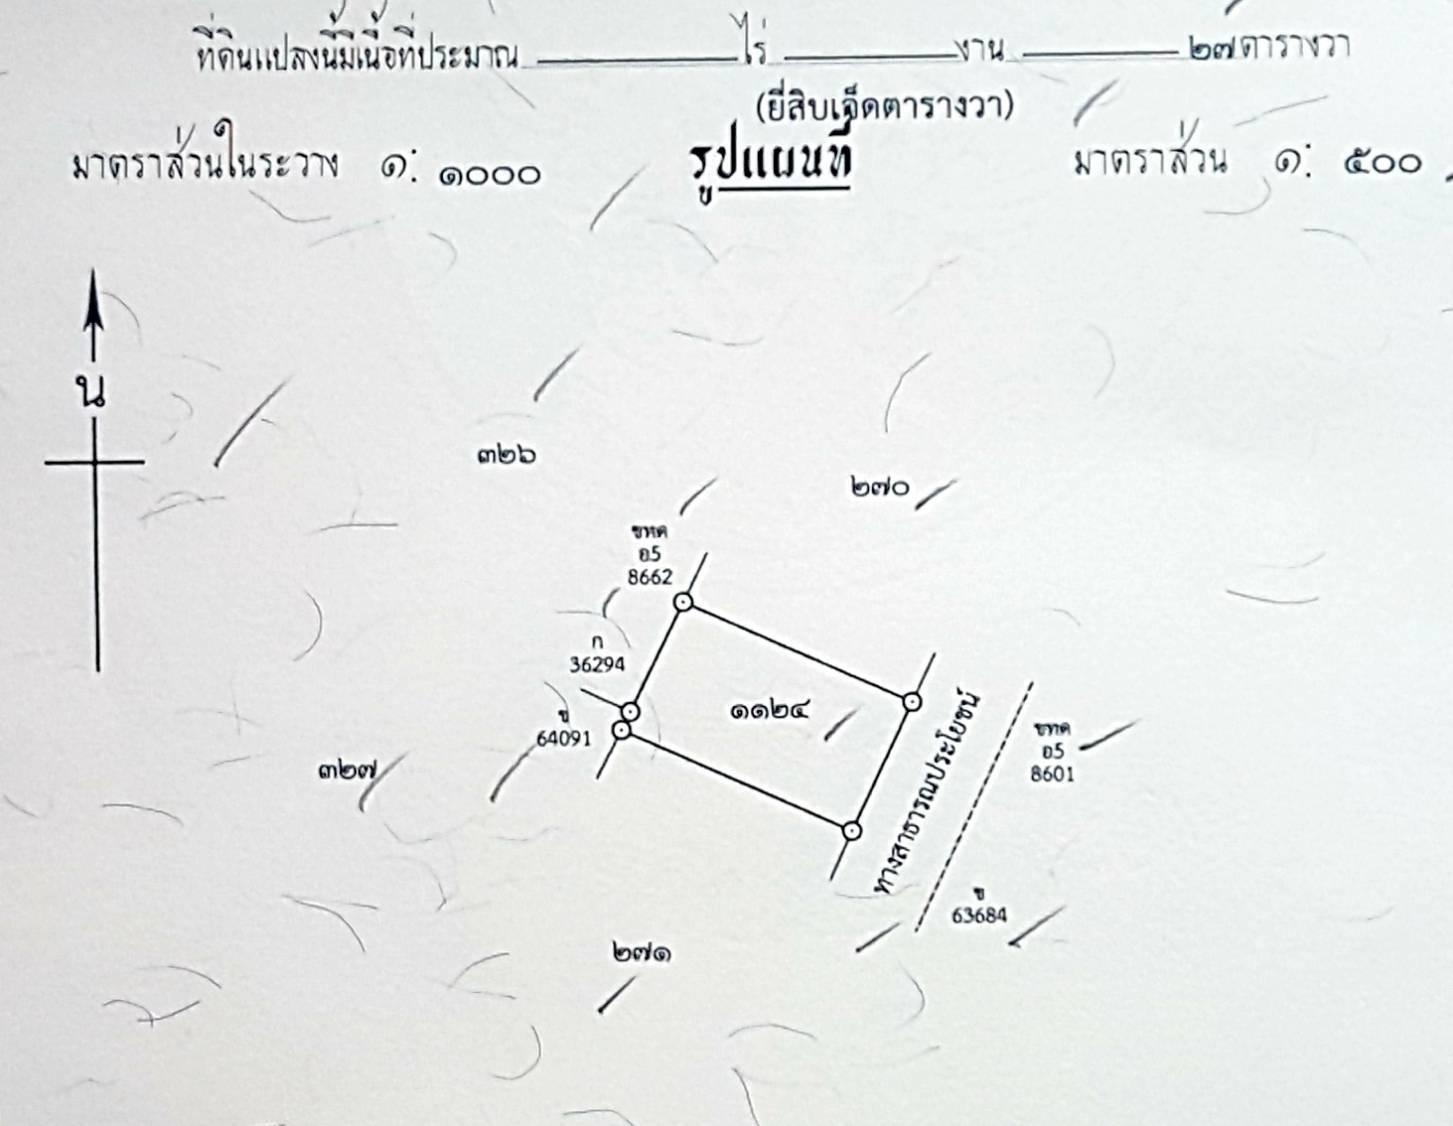 ที่ดินแปลงนี้มีเนื้อที่ประมาณ ไร่ งาน ๒๗ตารางวา
(ยี่สิบเจ็ดตารางวา)
มาตราส่วนในระวาง ๑: ๑๐๐๐ รูปแผนที่ มาตราส่วน ๑: ๕๐๐
น
๓๒๖
๒๗๐
ขทค
อ5
8662
ก
36294
๑๑๒๔
ข
64091
ทางสาธารณประโยชน์
ขทค
อ5
8601
๓๒๗
ข
63684
๒๗๑